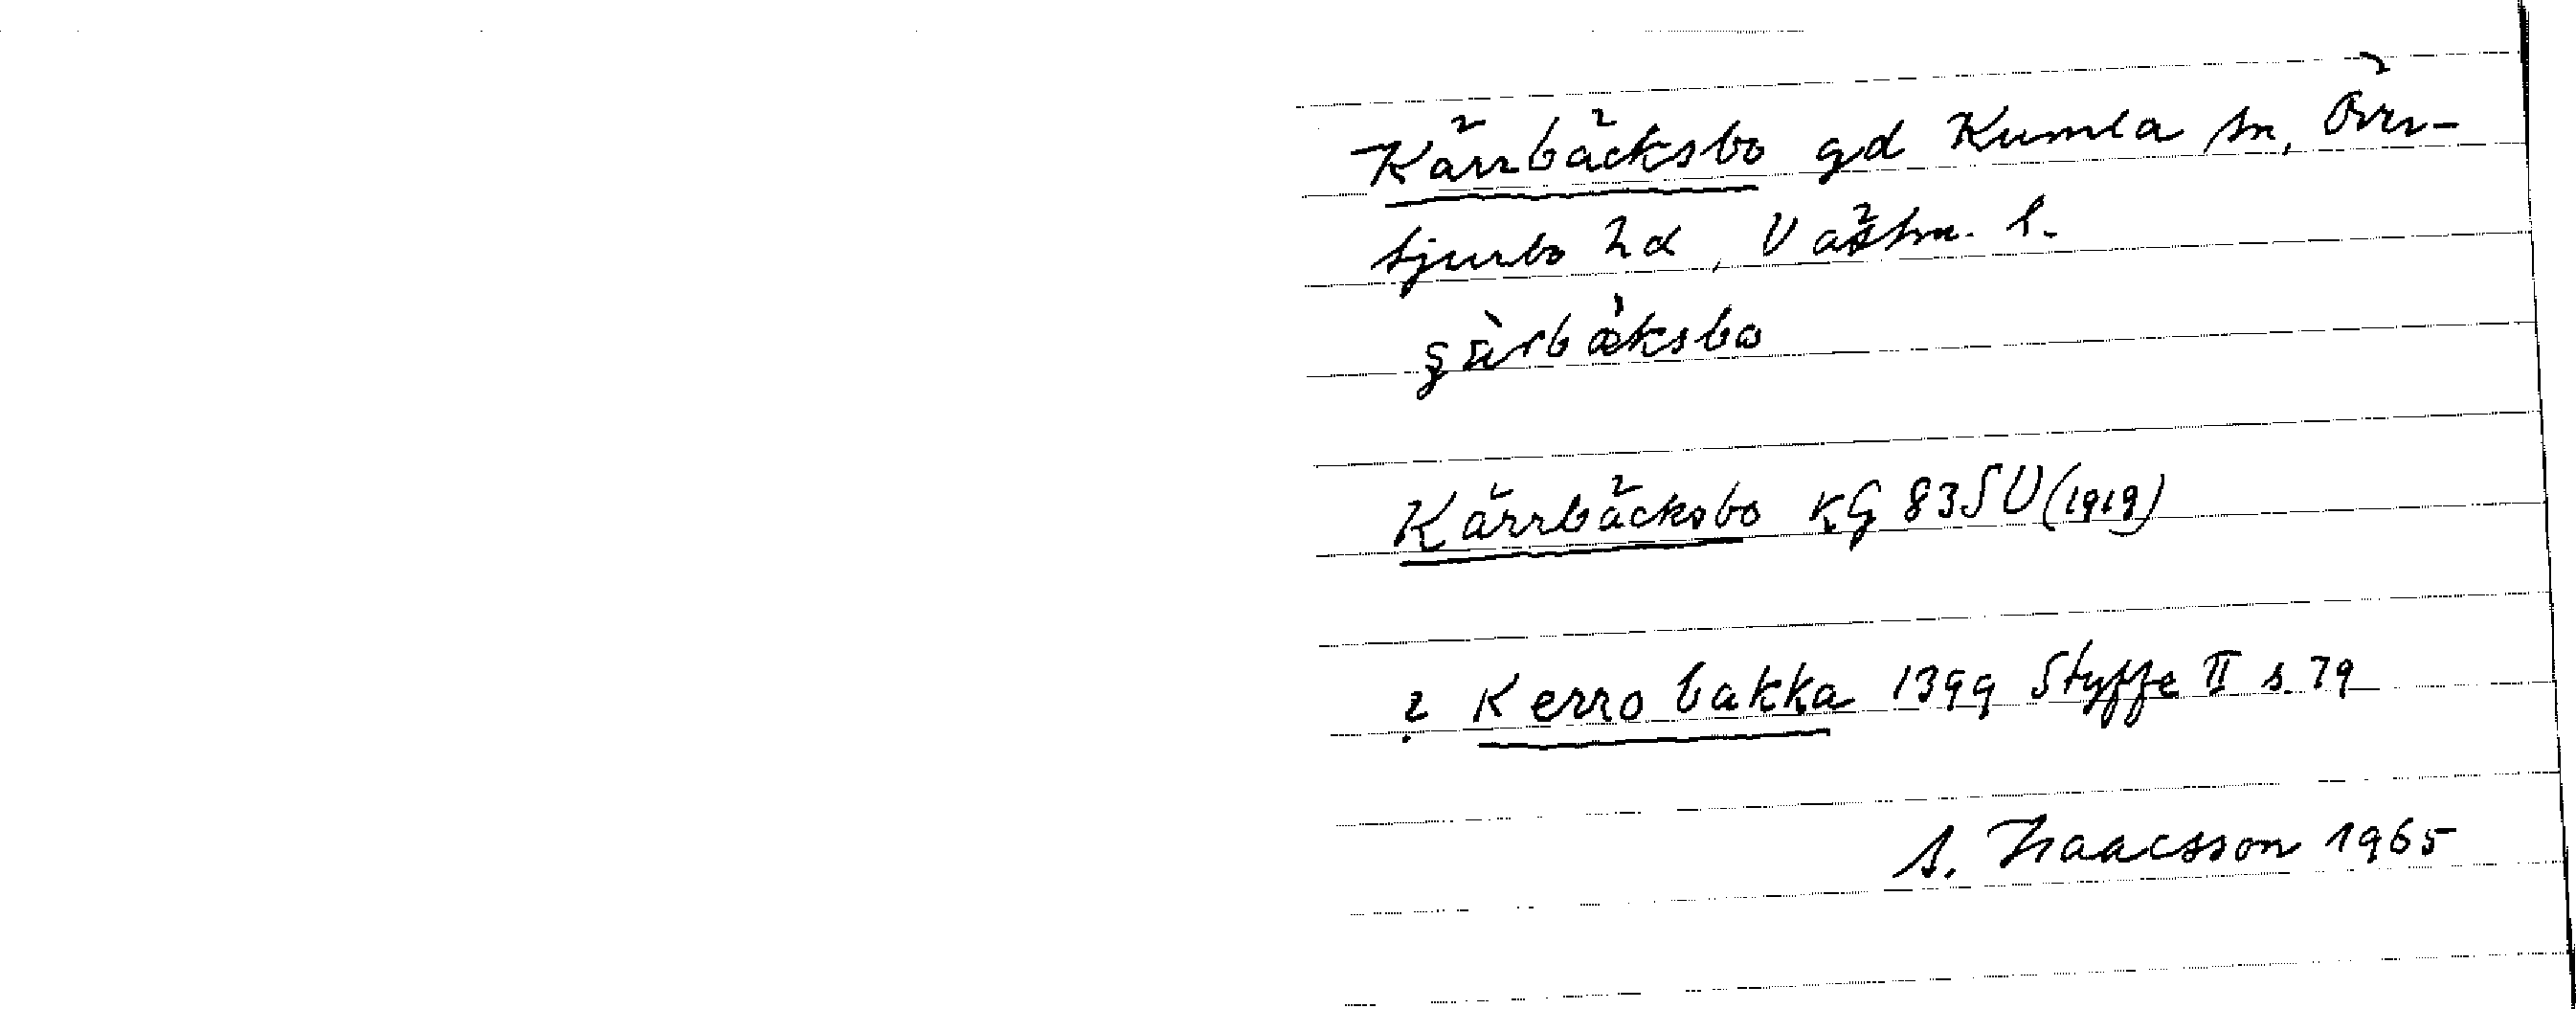 Kärrbäcksbo gd Kumla sn, Över-
tjurbo hd, Västm. l.
Kärrbäcksbo KG 83SV (1919)
? Kerrobakka 1399 Styffe II s 79
S. Isaacsson 1965